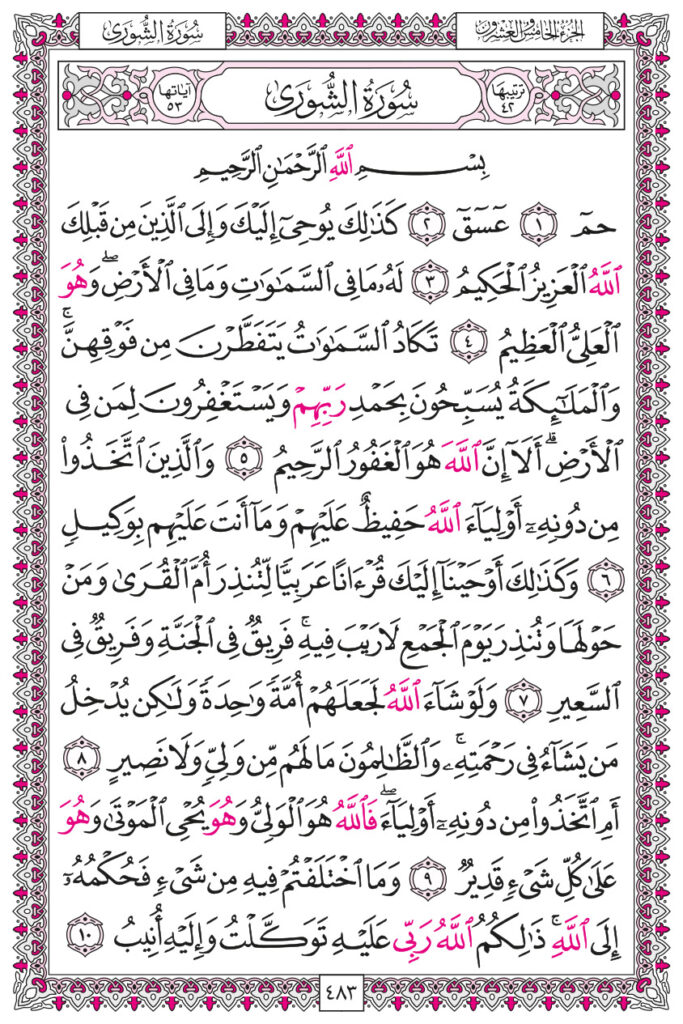 الجزء الخامس والعشرون
سورة الشورى
ترتيبها ٤٢
سُورَةُ الشُّورَىٰ
آياتها ٥٣
بِسْمِ اللَّهِ الرَّحْمَٰنِ الرَّحِيمِ
حمٓ ۝١ عٓسٓقٓ ۝٢ كَذَٰلِكَ يُوحِىٓ إِلَيْكَ وَإِلَى ٱلَّذِينَ مِن قَبْلِكَ
ٱللَّهُ ٱلْعَزِيزُ ٱلْحَكِيمُ ۝٣ لَهُۥ مَا فِى ٱلسَّمَٰوَٰتِ وَمَا فِى ٱلْأَرْضِ ۖ وَهُوَ
ٱلْعَلِىُّ ٱلْعَظِيمُ ۝٤ تَكَادُ ٱلسَّمَٰوَٰتُ يَتَفَطَّرْنَ مِن فَوْقِهِنَّ ۚ
وَٱلْمَلَٰٓئِكَةُ يُسَبِّحُونَ بِحَمْدِ رَبِّهِمْ وَيَسْتَغْفِرُونَ لِمَن فِى
ٱلْأَرْضِ ۗ أَلَآ إِنَّ ٱللَّهَ هُوَ ٱلْغَفُورُ ٱلرَّحِيمُ ۝٥ وَٱلَّذِينَ ٱتَّخَذُوا۟
مِن دُونِهِۦٓ أَوْلِيَآءَ ٱللَّهُ حَفِيظٌ عَلَيْهِمْ وَمَآ أَنتَ عَلَيْهِم بِوَكِيلٍ
۝٦ وَكَذَٰلِكَ أَوْحَيْنَآ إِلَيْكَ قُرْءَانًا عَرَبِيًّا لِّتُنذِرَ أُمَّ ٱلْقُرَىٰ وَمَنْ
حَوْلَهَا وَتُنذِرَ يَوْمَ ٱلْجَمْعِ لَا رَيْبَ فِيهِ ۚ فَرِيقٌ فِى ٱلْجَنَّةِ وَفَرِيقٌ فِى
ٱلسَّعِيرِ ۝٧ وَلَوْ شَآءَ ٱللَّهُ لَجَعَلَهُمْ أُمَّةً وَٰحِدَةً وَلَٰكِن يُدْخِلُ
مَن يَشَآءُ فِى رَحْمَتِهِۦ ۚ وَٱلظَّٰلِمُونَ مَا لَهُم مِّن وَلِىٍّ وَلَا نَصِيرٍ ۝٨
أَمِ ٱتَّخَذُوا۟ مِن دُونِهِۦٓ أَوْلِيَآءَ ۖ فَٱللَّهُ هُوَ ٱلْوَلِىُّ وَهُوَ يُحْىِ ٱلْمَوْتَىٰ وَهُوَ
عَلَىٰ كُلِّ شَىْءٍ قَدِيرٌ ۝٩ وَمَا ٱخْتَلَفْتُمْ فِيهِ مِن شَىْءٍ فَحُكْمُهُۥٓ
إِلَى ٱللَّهِ ۚ ذَٰلِكُمُ ٱللَّهُ رَبِّى عَلَيْهِ تَوَكَّلْتُ وَإِلَيْهِ أُنِيبُ ۝١٠
٤٨٣